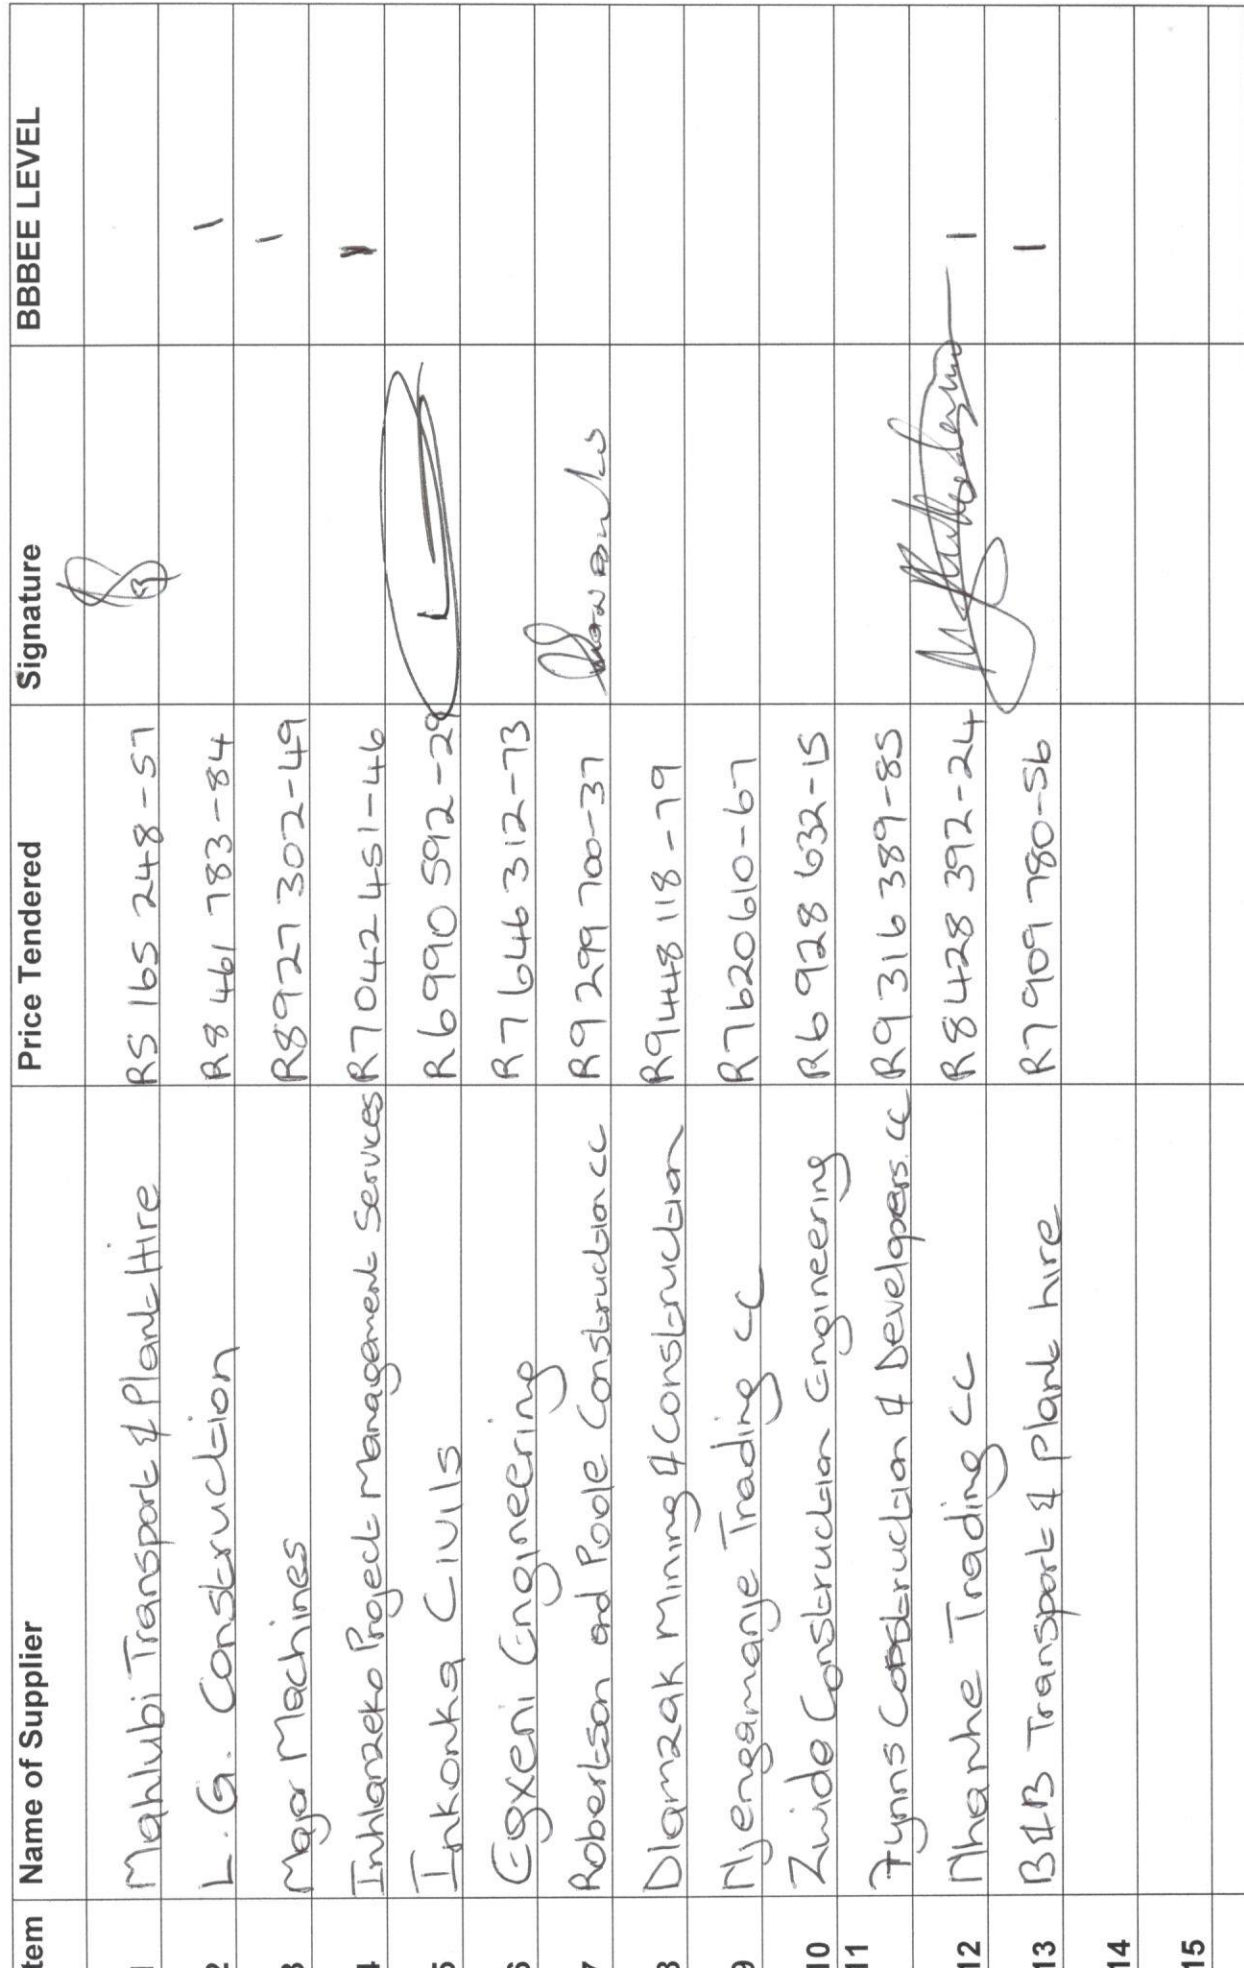 tem Name of Supplier Price Tendered Signature BBBEE LEVEL
1 Mahlubi Transport & Plant Hire R5 165 248-57
2 L.G. Construction R8 461 783-84 1
3 Major Machines R8927 302-49 1
4 Inhlanzeko Project Management Services R7042 451-46
5 Inkonka Civils R6990 592-29
6 Egxeni Engineering R7 646 312-73
7 Robertson and Poole Construction cc R9 299 700-37
8 Dlamzak Mining & Construction R9448 118-79
9 Myengamanje Trading cc R7620610-67
10 Zwide Construction Engineering R6 928 632-15
11 Fynns Construction & Developers. cc R9 316 389-85
12 Mhanhe Trading cc R8 428 392-24 1
13 B&B Transport & Plant hire R7 909 780-56 1
14
15